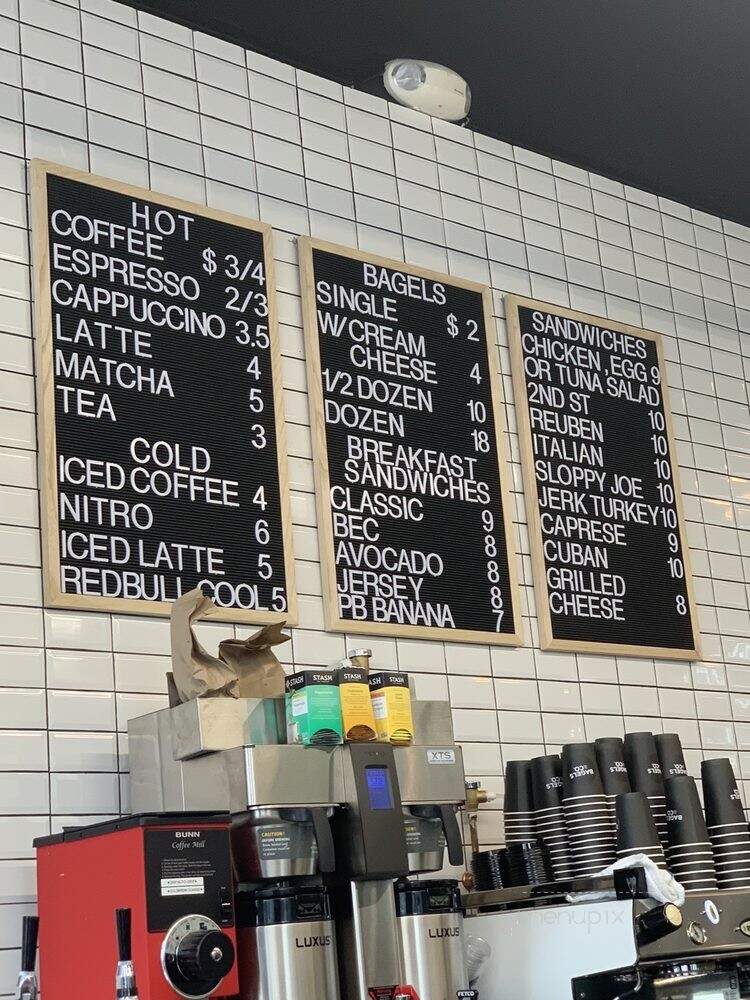 HOT
COFFEE $ 3/4
ESPRESSO 2/3
CAPPUCCINO 3.5
LATTE 4
MATCHA 5
TEA 3
COLD
ICED COFFEE 4
NITRO 6
ICED LATTE 5
REDBULL COOL 5
BAGELS
SINGLE $ 2
W/ CREAM
CHEESE 4
1/2 DOZEN 10
DOZEN 18
BREAKFAST
SANDWICHES
CLASSIC 9
BEC 8
AVOCADO 8
JERSEY 8
PB BANANA 7
SANDWICHES
CHICKEN , EGG 9
OR TUNA SALAD
2ND ST 10
REUBEN 10
ITALIAN 10
SLOPPY JOE 10
JERK TURKEY 10
CAPRESE 9
CUBAN 10
GRILLED
CHEESE 8
STASH STASH STASH
XTS
BUNN
Coffee Mill
CAUTION!
LUXUS LUXUS
FETCO
BAGELS
& CO
BAGELS
BAGELS
BAGELS
menupix